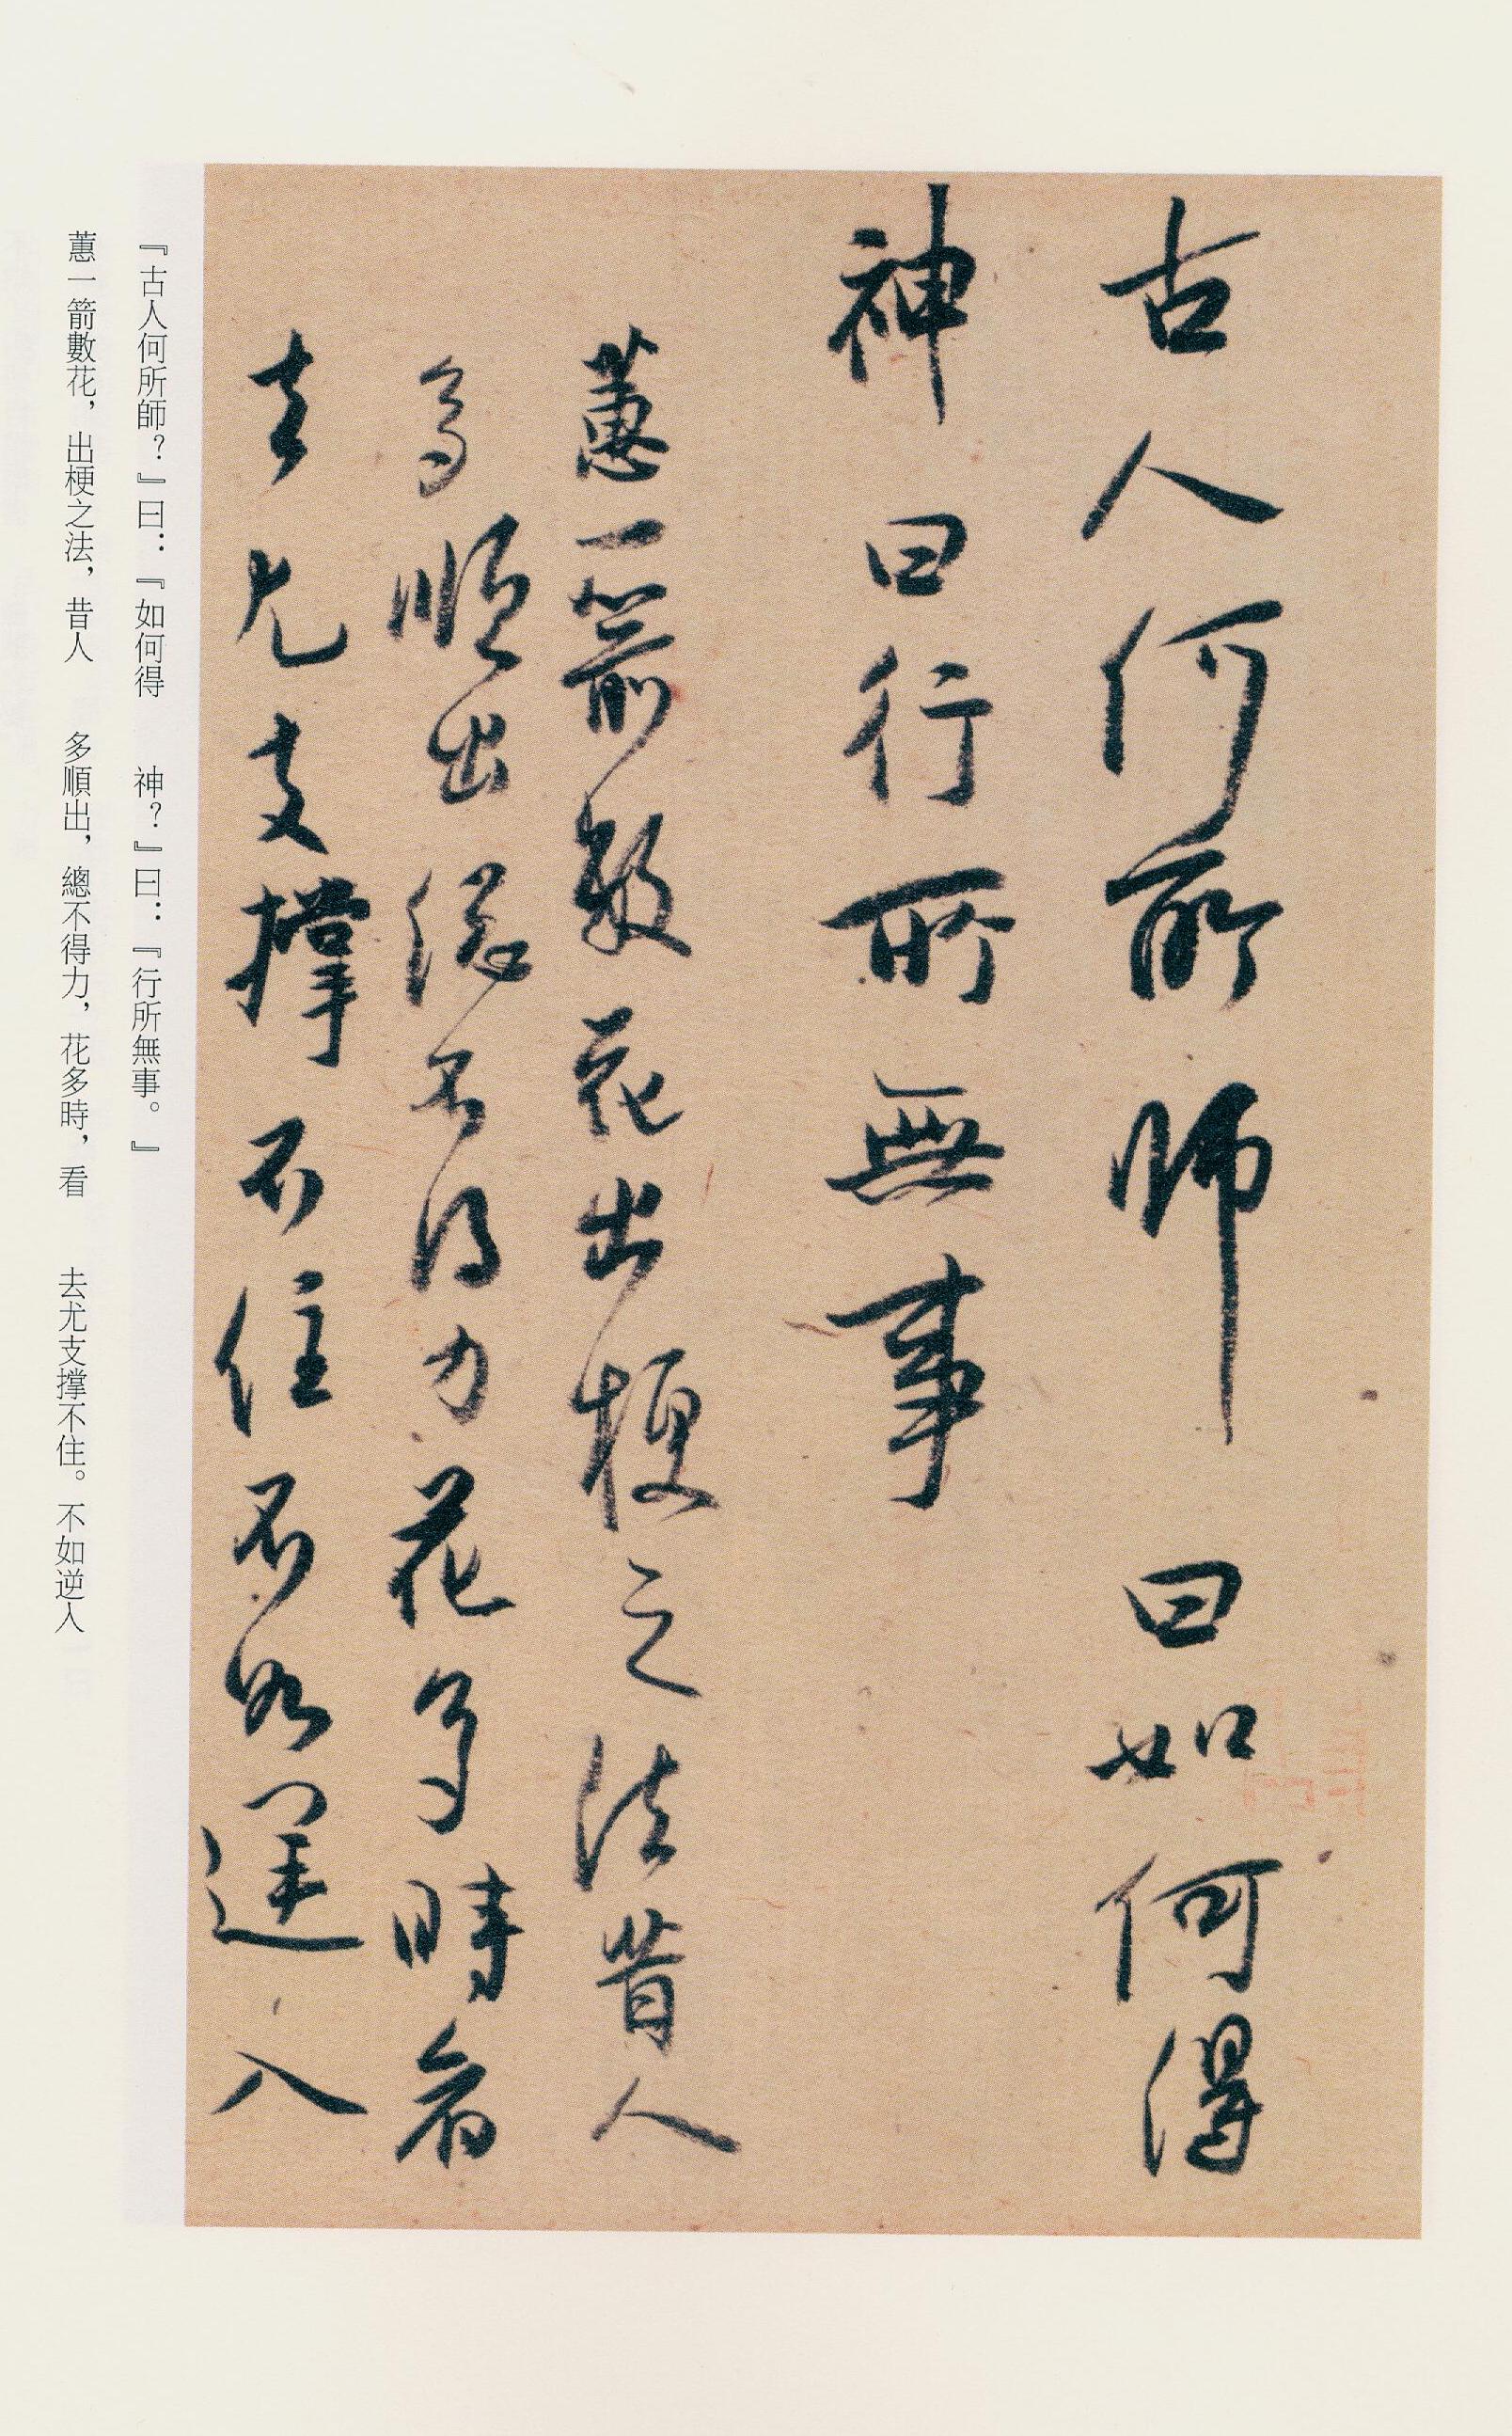 古人何所師　曰如何得
神曰行所無事
蕙一箭數花出梗之法昔人
多順出總不得力花多時看
去尤支撑不住不如逆入
『古人何所師？』曰：『如何得　神？』曰：『行所無事。』
蕙一箭數花，出梗之法，昔人　多順出，總不得力，花多時，看　去尤支撐不住。不如逆人